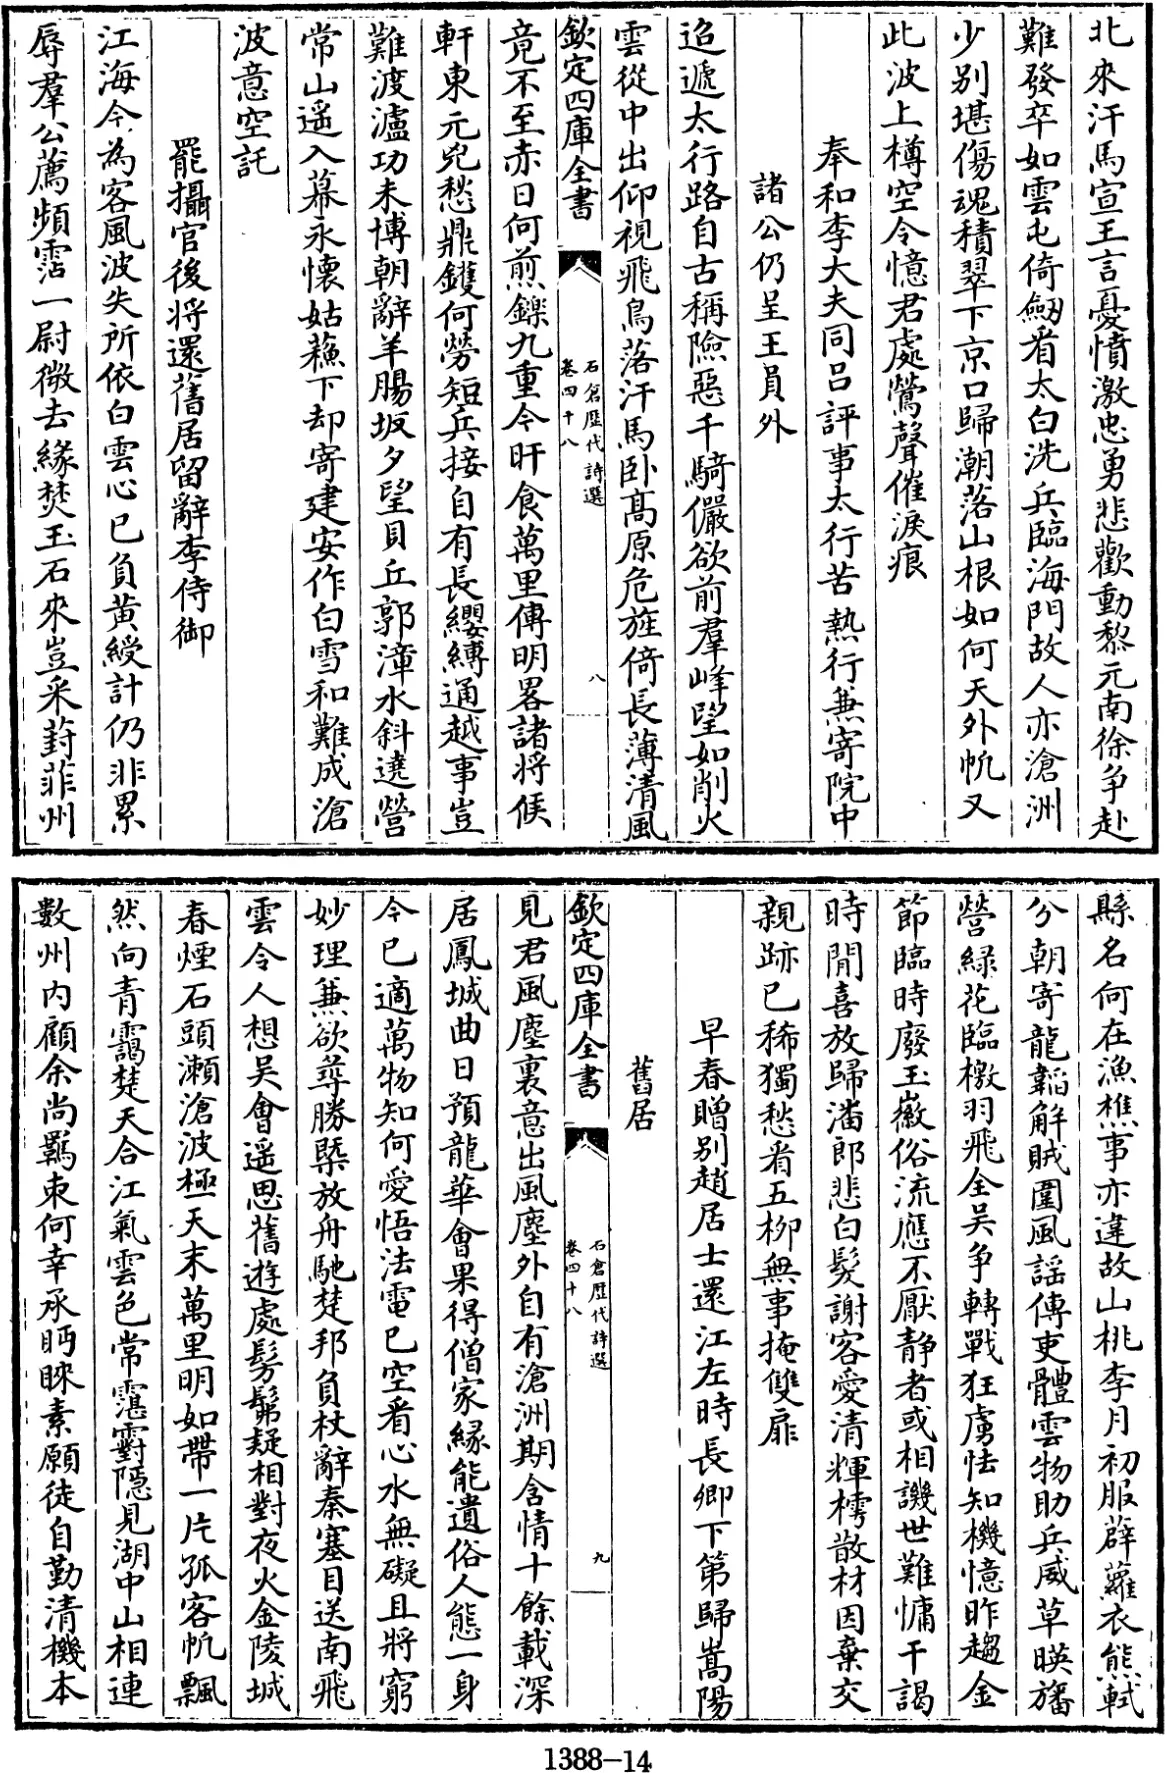 北來汗馬宣王言憂憤激忠勇悲歡動黎元南徐争赴
難發卒如雲屯倚劒看太白洗兵臨海門故人亦滄洲
少别堪傷魂積翠下京口歸潮落山根如何天外帆又
此波上樽空令憶君處鶯聲催淚痕
奉和李大夫同吕評事太行苦熱行兼寄院中
諸公仍呈王員外
迢遞太行路自古稱險惡千騎儼欲前羣峰望如削火
雲從中出仰視飛鳥落汗馬卧髙原危旌倚長薄清風
欽定四庫全書
石倉歴代詩選
卷四十八
八
竟不至赤日何煎鑠九重今旰食萬里傳明畧諸將候
軒東元兇愁鼎鑊何勞短兵接自有長纓縛通越事豈
難渡瀘功未博朝辭羊腸坂夕望貝丘郭漳水斜遶營
常山遥入幕永懷姑蘓下却寄建安作白雪和難成滄
波意空託
罷攝官後將還舊居留辭李侍御
江海今為客風波失所依白雲心已負黄綬計仍非累
辱羣公薦頻霑一尉微去緣焚玉石來豈采葑菲州
縣名何在漁樵事亦違故山桃李月初服薜蘿衣熊軾
分朝寄龍韜解賊圍風謡傳吏體雲物助兵威草暎旛
營緑花臨檄羽飛全吳争轉戰狂虜怯知機憶昨趨金
節臨時廢玉徽俗流應不厭静者或相譏世難慵干謁
時閒喜放歸潘郎悲白髮謝客愛清輝樗散材因棄交
親跡已稀獨愁看五柳無事掩雙扉
早春贈别趙居士還江左時長卿下第歸嵩陽
舊居
欽定四庫全書
石倉歴代詩選
卷四十八
九
見君風塵裏意出風塵外自有滄洲期含情十餘載深
居鳳城曲日預龍華會果得僧家緣能遺俗人態一身
今已適萬物知何愛悟法電已空看心水無礙且將窮
妙理兼欲尋勝槩放舟馳楚邦負杖辭秦塞目送南飛
雲令人想吳會遥思舊遊處髣髴疑相對夜火金陵城
春煙石頭瀬滄波極天末萬里明如帶一片孤客帆飄
然向青靄楚天合江氣雲色常霮䨴隠見湖中山相連
數州内顧余尚羈束何幸承眄睞素願徒自勤清機本
1388-14